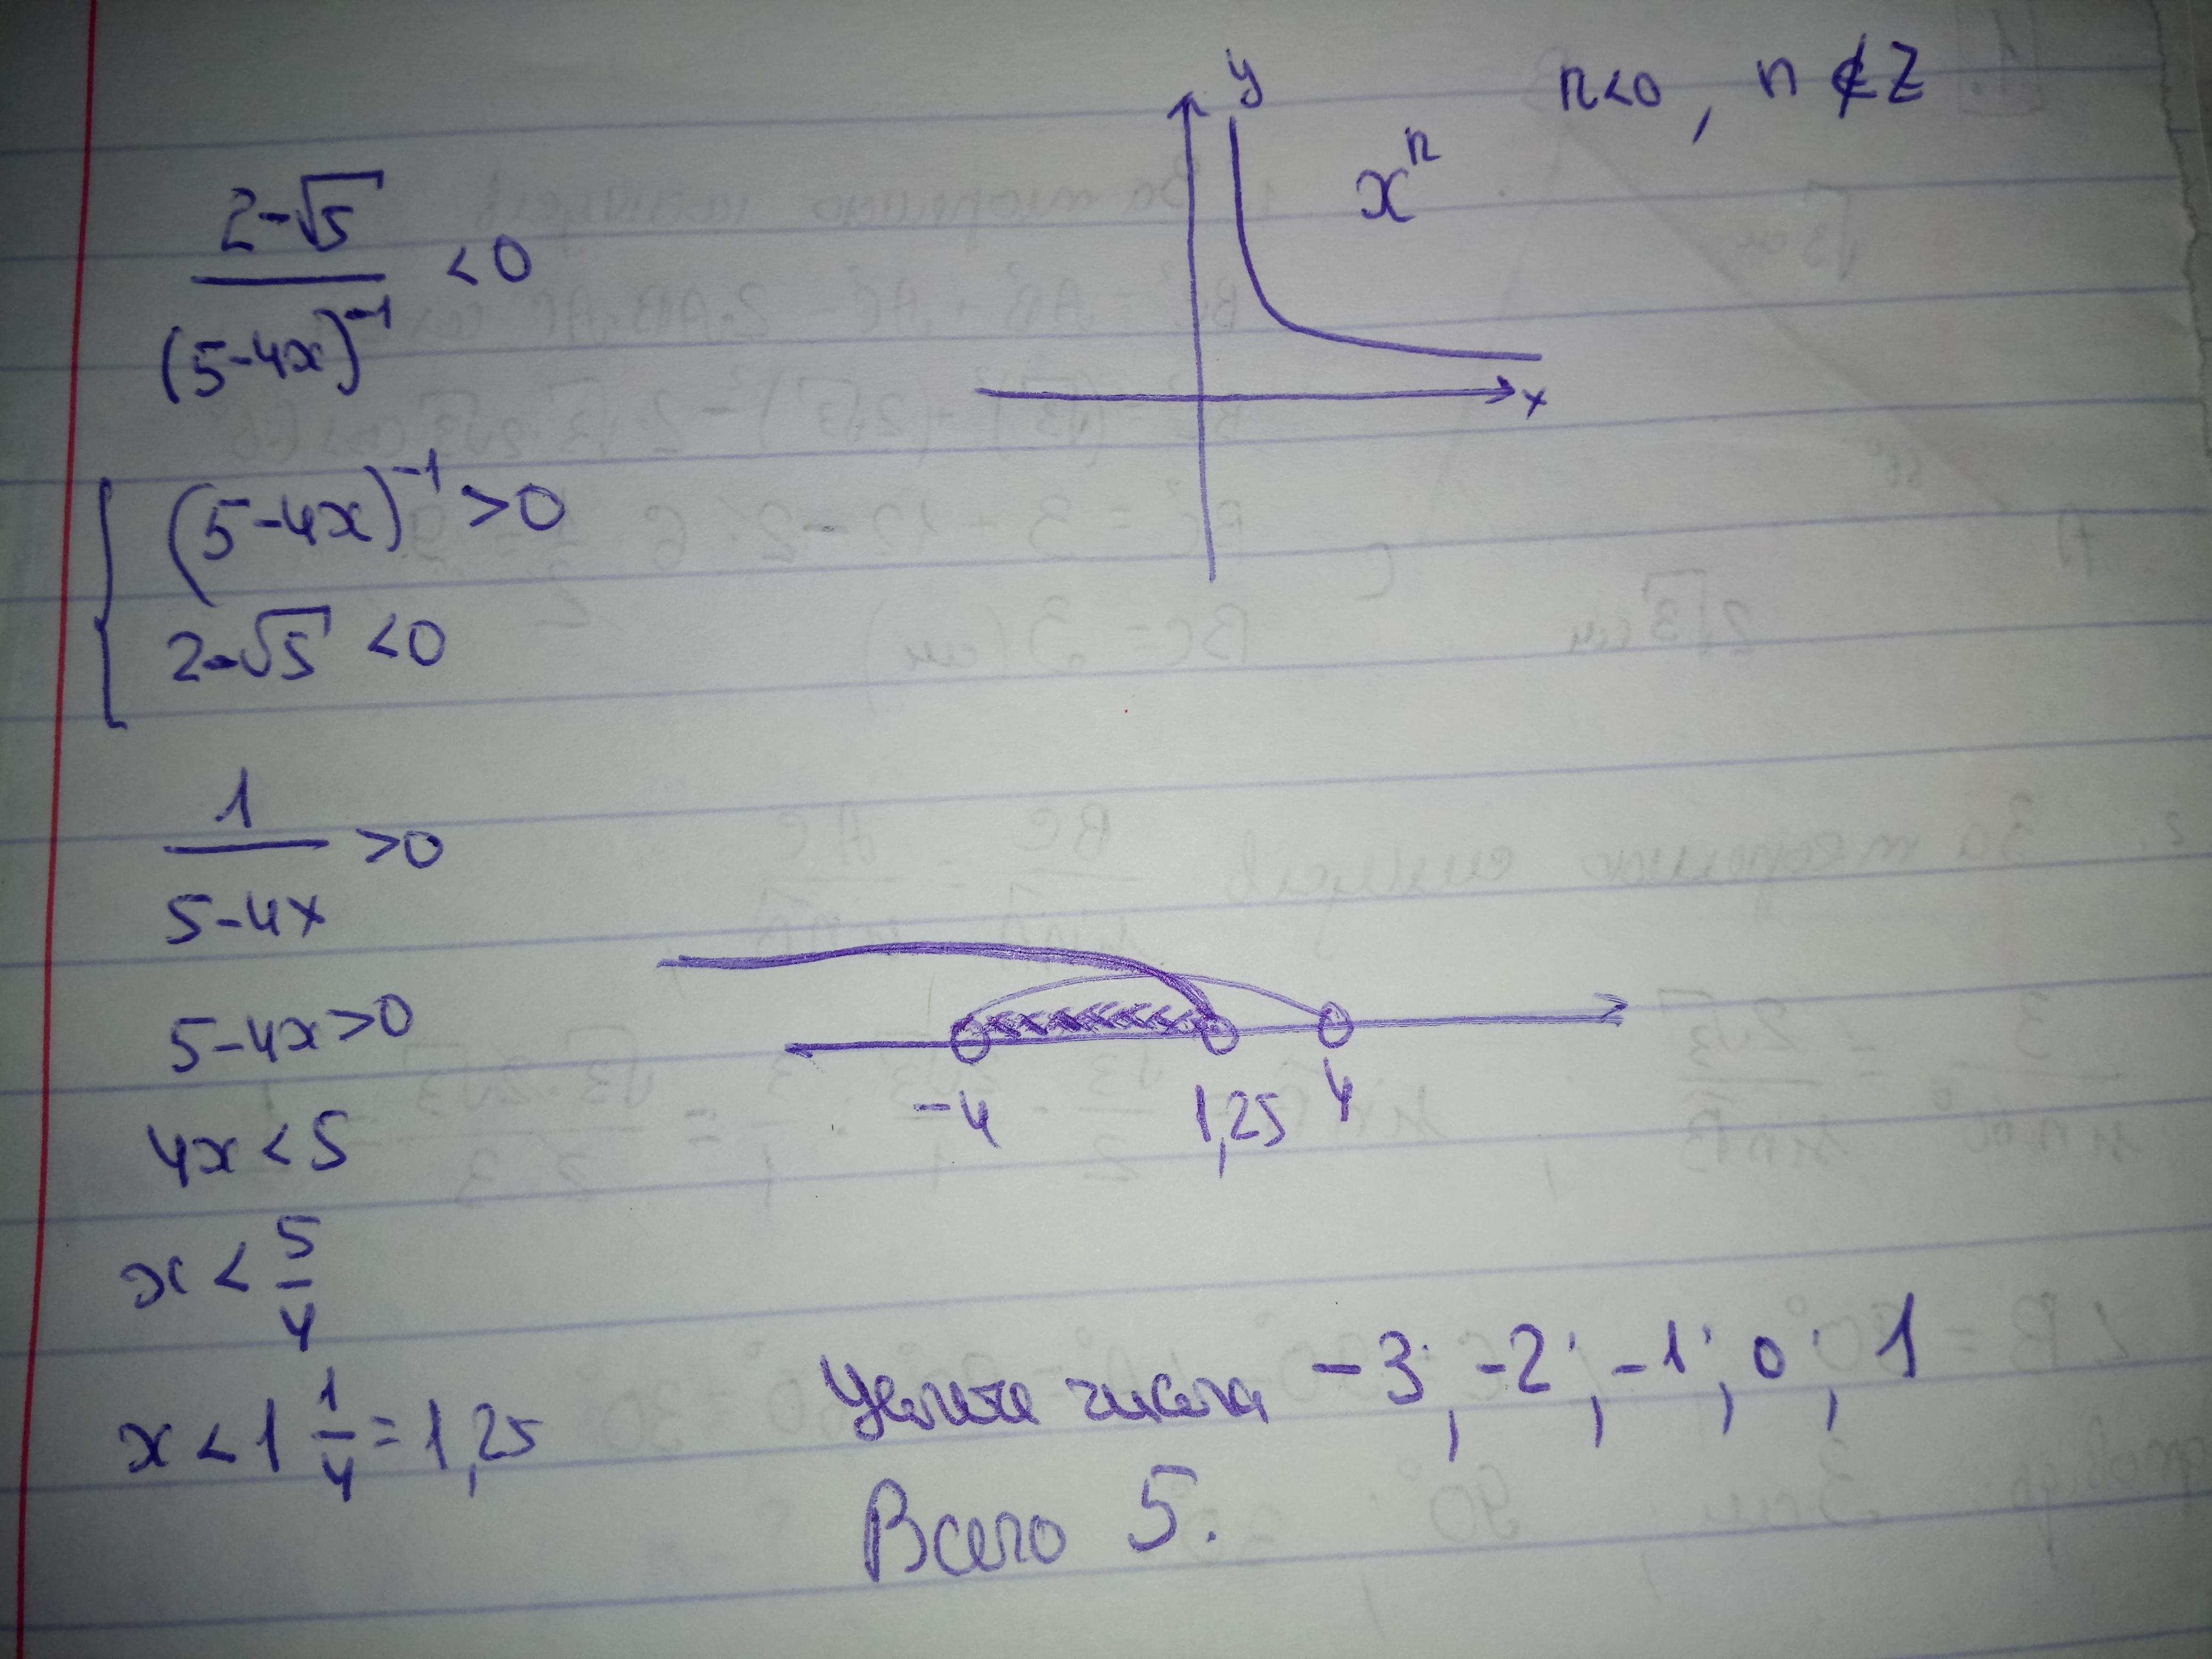 n<0, n∉Z
y
xⁿ
x
(2-√5)/(5-4x)⁻¹ <0
{ (5-4x)⁻¹ >0
2-√5 <0
1/(5-4x) >0
5-4x>0
4x<5
x < 5/4
x < 1 1/4 = 1,25
-4 1,25 4
Целые числа -3; -2; -1; 0; 1
Всего 5.